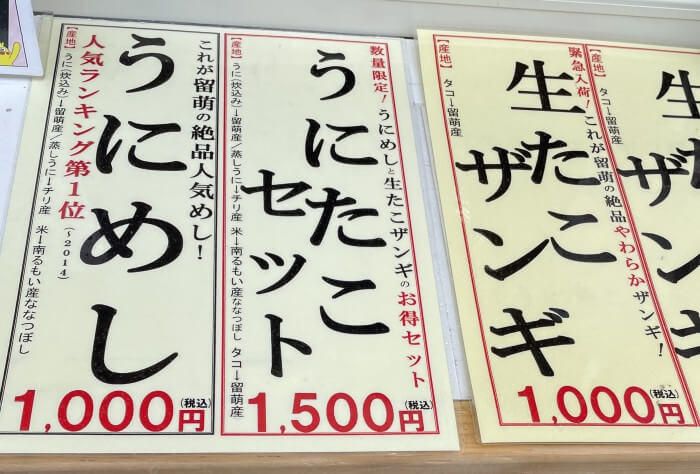 これが留萌の絶品人気めし！
うにめし
人気ランキング第1位
(〜2014)
【産地】うに(炊込み)→留萌産／蒸しうに→チリ産 米→南るもい産ななつぼし
1,000円(税込)
数量限定！うにめしと生たこザンギのお得セット
うにたこ
セット
【産地】うに(炊込み)→留萌産／蒸しうに→チリ産 米→南るもい産ななつぼし タコ→留萌産
1,500円(税込)
緊急入荷！これが留萌の絶品やわらかザンギ！
生たこ
ザンギ
【産地】タコ→留萌産
1,000円(税込)
生た
ザン
【産地】タコ→留萌産
1